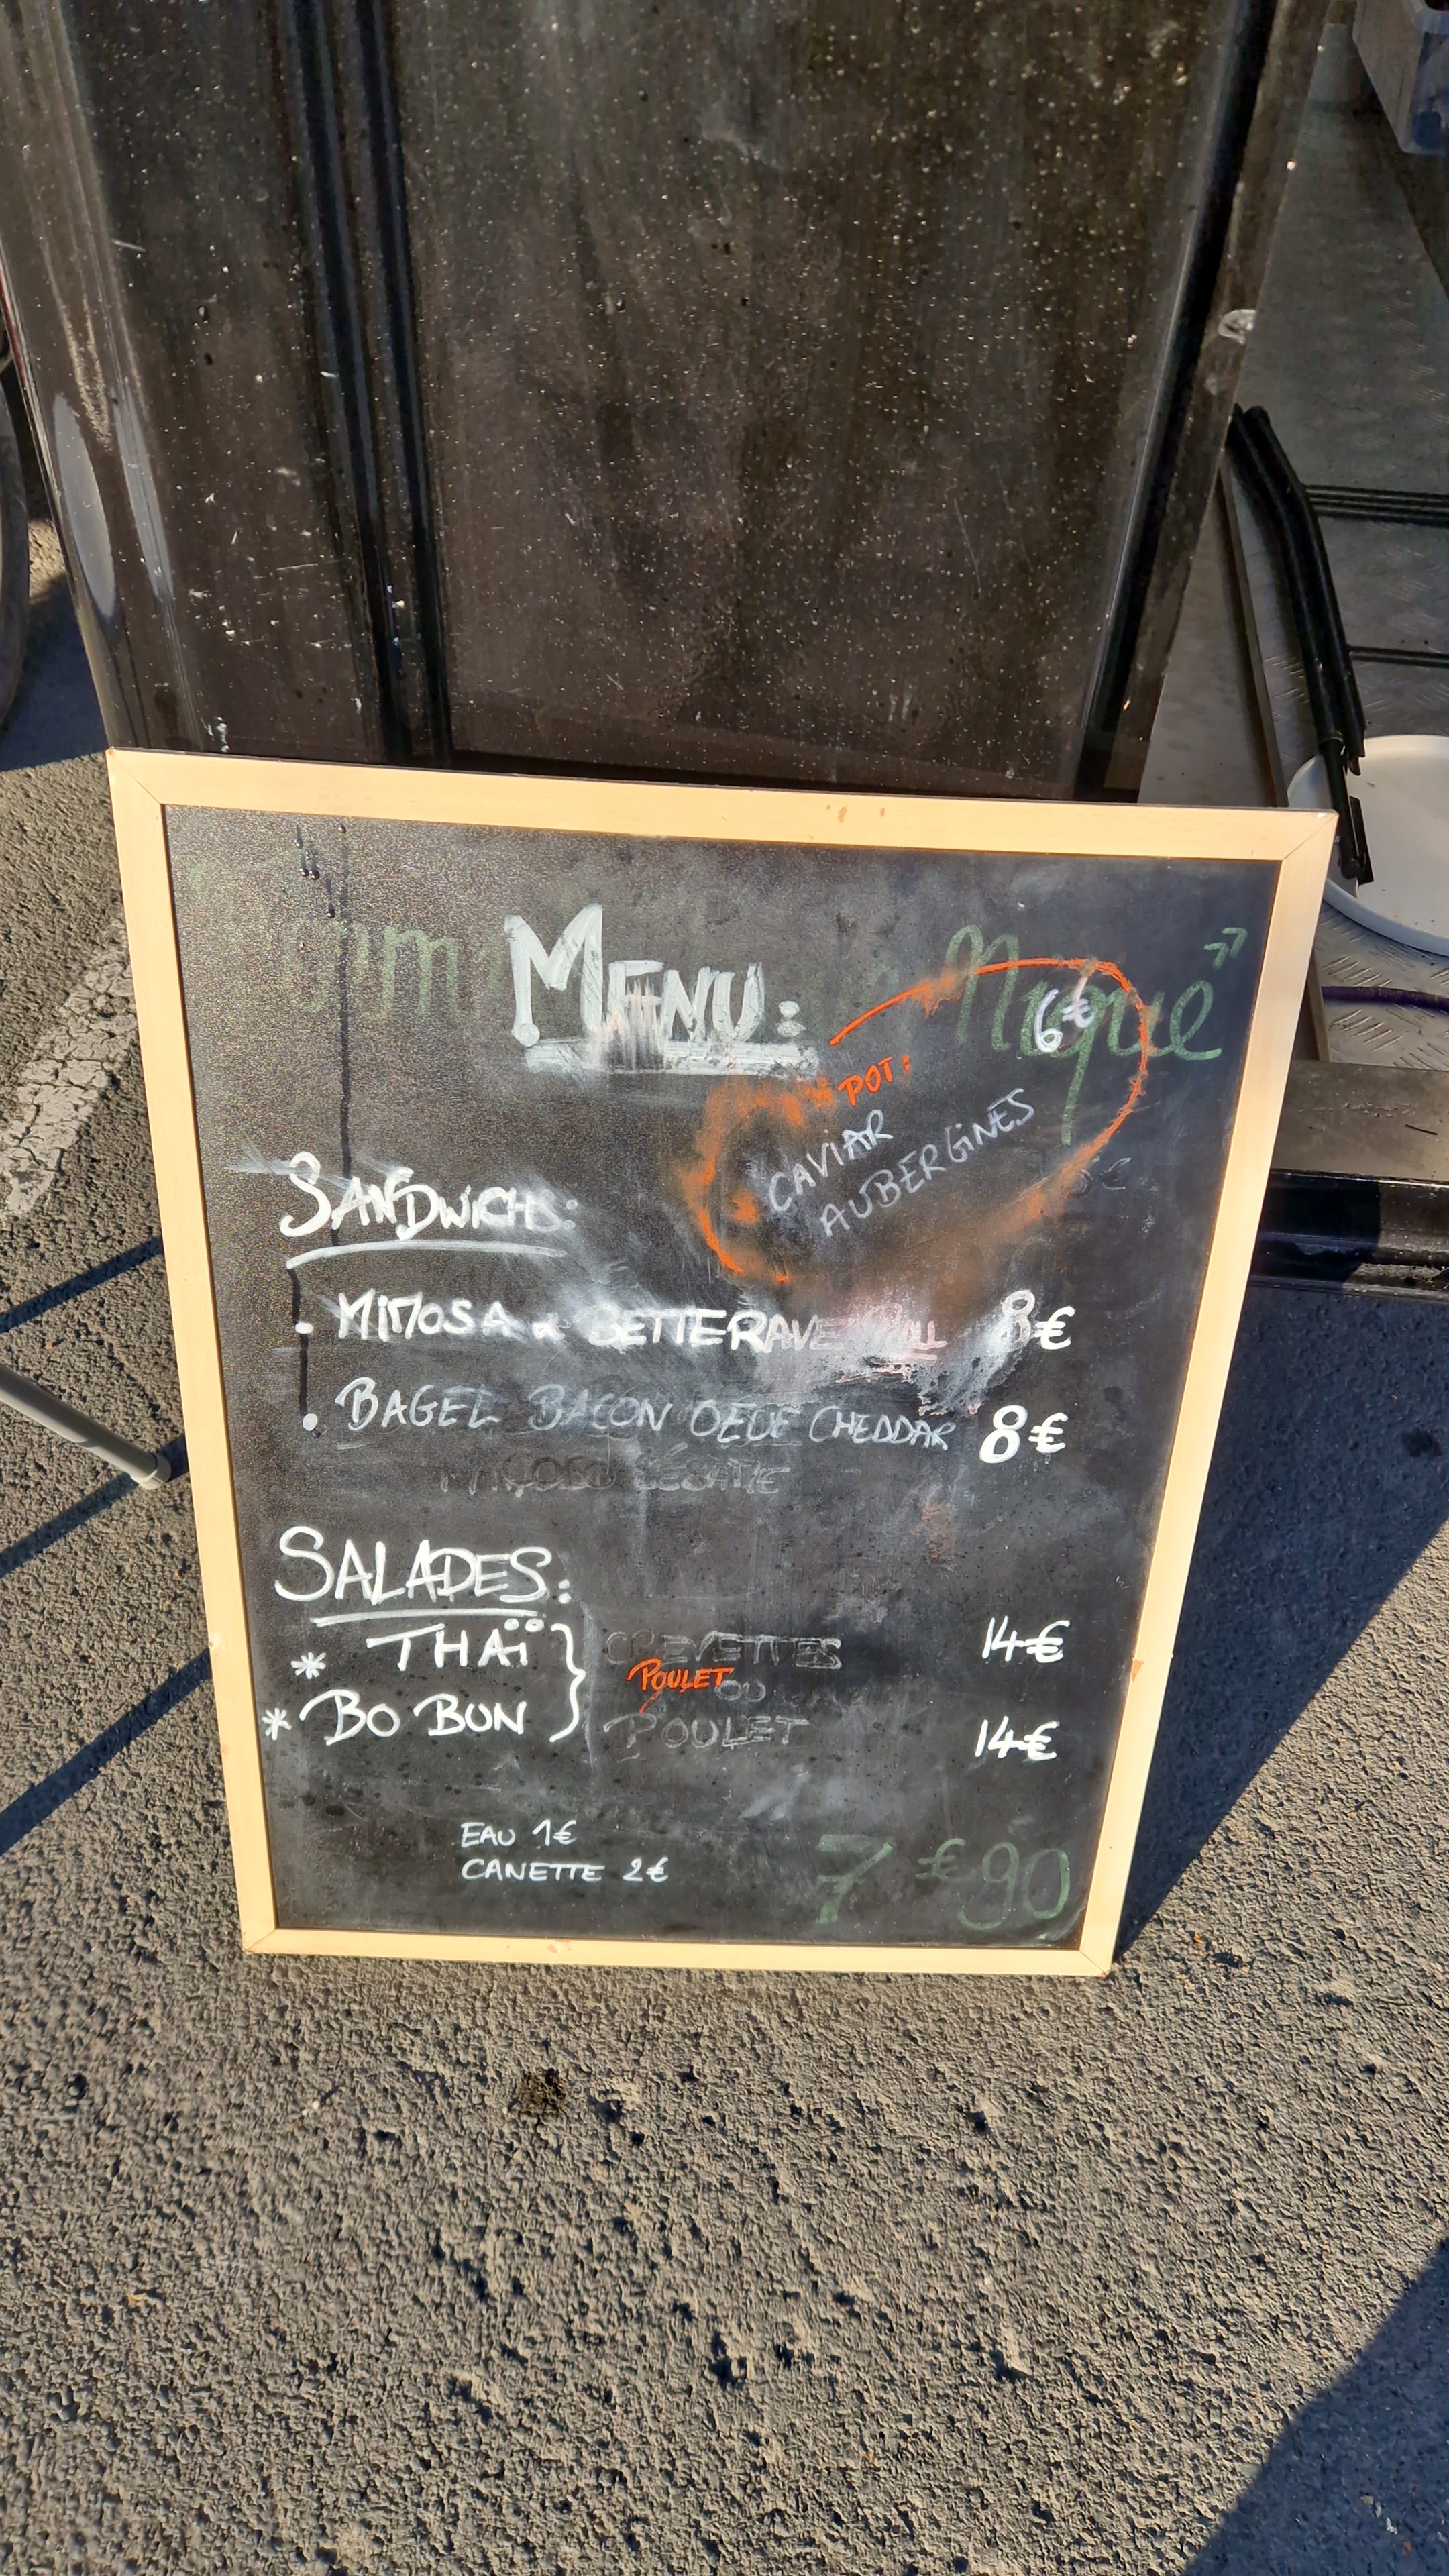 MENU:
Nique"
6€
POT:
CAVIAR
AUBERGINES
SANDWICHS:
• MIMOSA & BETTERAVE ROLL 8€
• BAGEL BACON OEUF CHEDDAR 8€
SALADES:
* THAÏ } CREVETTES 14€
POULET OU
* BO BUN POULET 14€
EAU 1€
CANETTE 2€
7€90